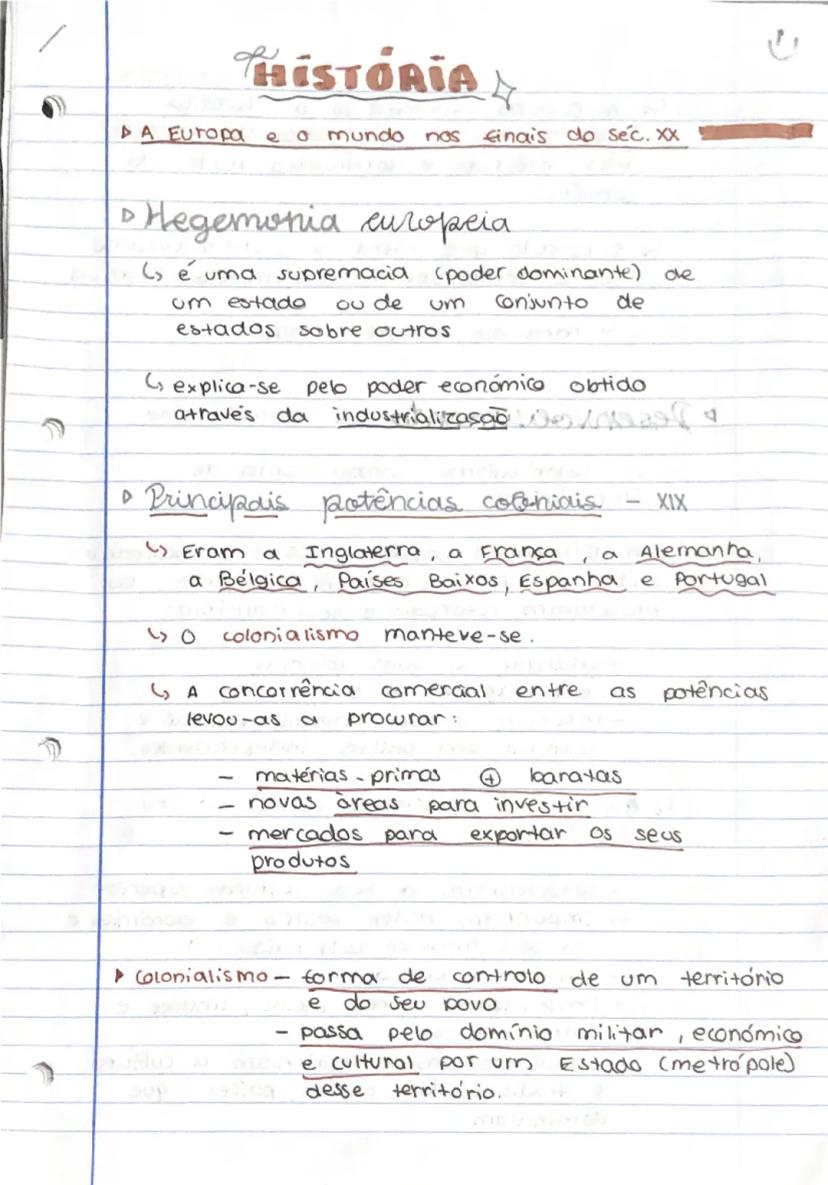 HISTÓRIA
A Europa e o mundo nos finais do séc. XX
Hegemonia europeia
↳ é uma supremacia (poder dominante) de
um estado ou de um conjunto de
estados sobre outros
↳ explica-se pelo poder económico obtido
através da industrialização
Principais potências coloniais - XIX
↳ Eram a Inglaterra, a França, a Alemanha,
a Bélgica, Países Baixos, Espanha e Portugal
↳ O colonialismo manteve-se.
↳ A concorrência comercial entre as potências
levou-as a procurar:
- matérias-primas ⊕ baratas
- novas áreas para investir
- mercados para exportar os seus
produtos
Colonialismo - forma de controlo de um território
e do seu povo
- passa pelo domínio militar, económico
e cultural por um Estado (metrópole)
desse território.